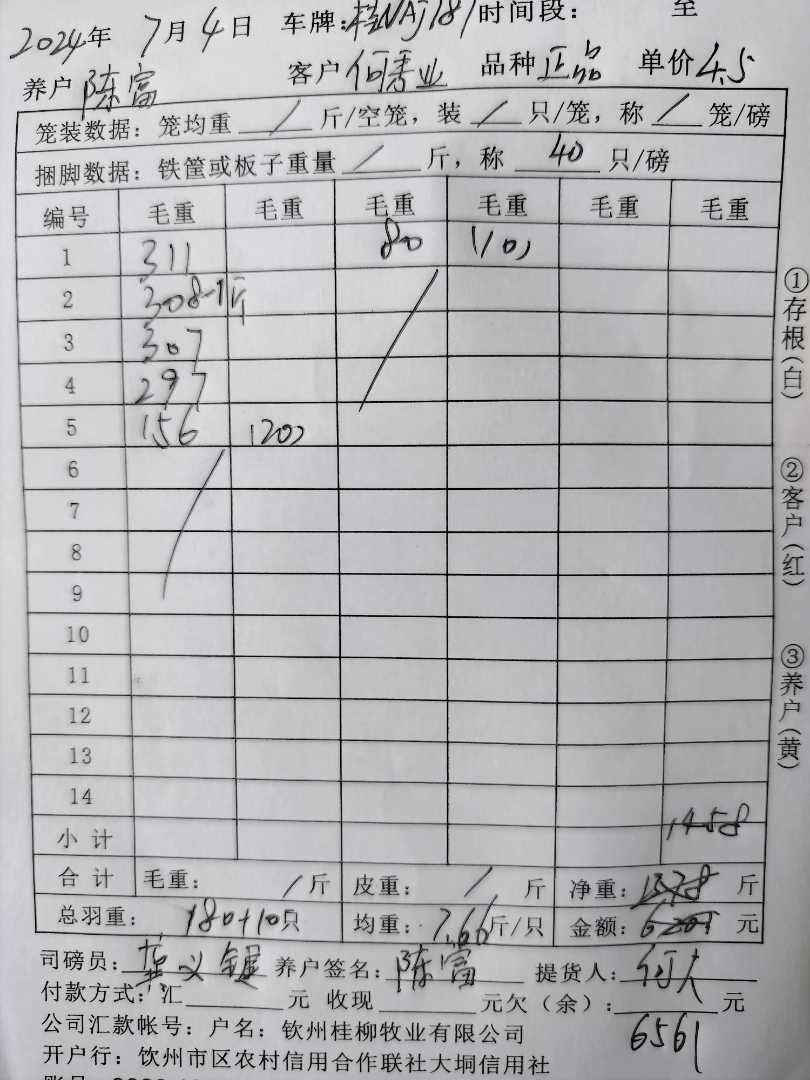 2024年 7月 4日 车牌:桂NAJ181 时间段: 至
养户 陈富 客户 何秀业 品种 正品 单价 4.5
笼装数据: 笼均重 / 斤/空笼, 装 / 只/笼, 称 / 笼/磅
捆脚数据: 铁筐或板子重量 / 斤, 称 40 只/磅
编号 毛重 毛重 毛重 毛重 毛重 毛重
1 311 80 (10)
2 308-1斤
3 307
4 297
5 156 (20)
6
7
8
9
10
11
12
13
14
小计 1458
合计 毛重: / 斤 皮重: / 斤 净重: 斤
总羽重: 180+10只 均重: 7.66斤/只 金额: 元
司磅员: 养户签名: 陈富 提货人:
付款方式: 汇 元 收现 元欠(余): 元
6561
公司汇款帐号: 户名: 钦州桂柳牧业有限公司
开户行: 钦州市区农村信用合作联社大垌信用社
①存根(白)
②客户(红)
③养户(黄)